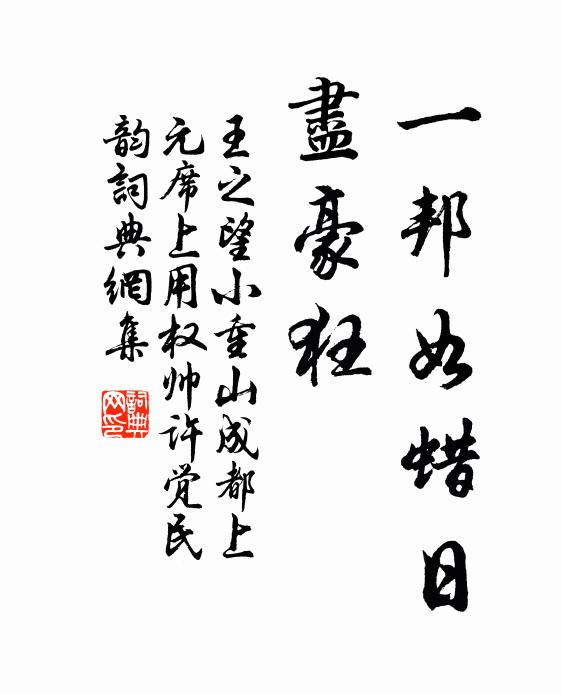 一邦如蜡日
盡豪狂
王之望小重山成都上
元席上用权帅许觉民
韵詞典網集
詞典
网印